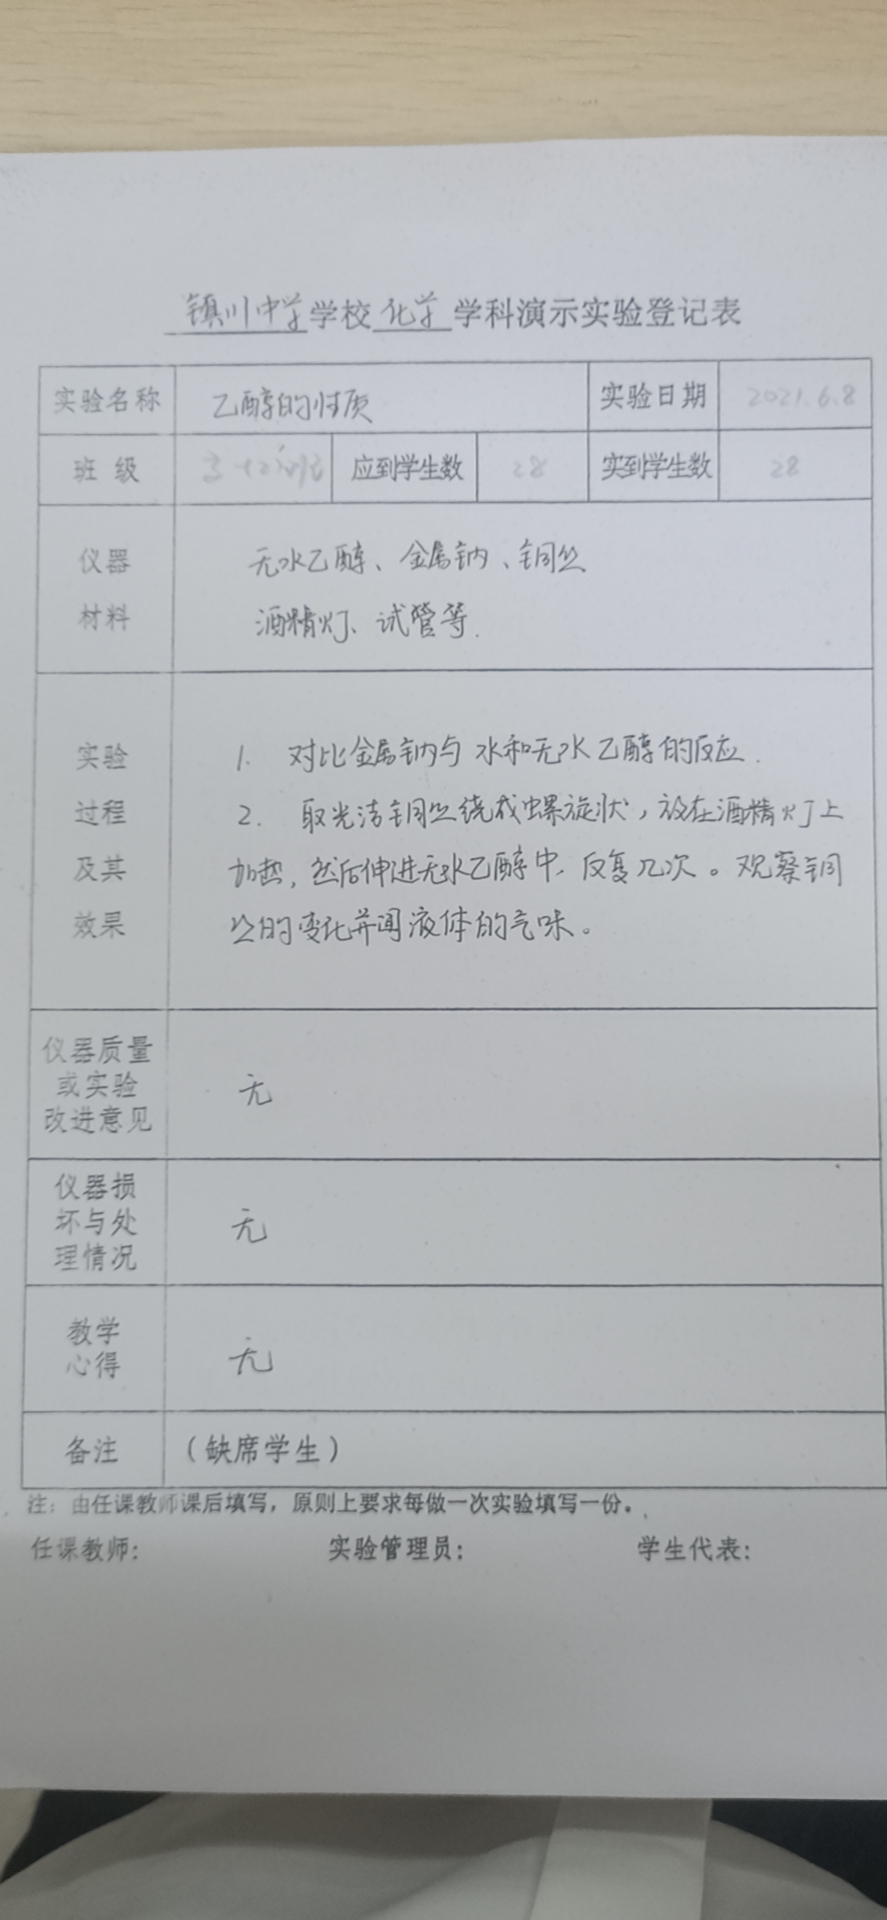 镇川中学学校化学学科演示实验登记表
实验名称 乙醇的性质 实验日期 2021.6.8
班级 应到学生数 28 实到学生数 28
仪器 无水乙醇、金属钠、铜丝
材料 酒精灯、试管等.
实验 1. 对比金属钠与水和无水乙醇的反应.
过程 2. 取光洁铜丝绕成螺旋状，放在酒精灯上
及其 加热，然后伸进无水乙醇中，反复几次。观察铜
效果 丝的变化并闻液体的气味。
仪器质量
或实验 无
改进意见
仪器损
坏与处 无
理情况
教学 无
心得
备注 （缺席学生）
注：由任课教师课后填写，原则上要求每做一次实验填写一份。
任课教师： 实验管理员： 学生代表：